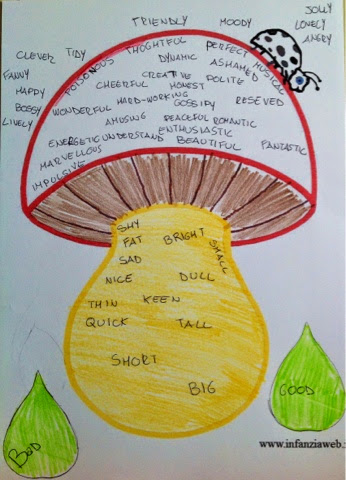 JOLLY
FRIENDLY MOODY LONELY
ANGRY
CLEVER TIDY THOGHTFUL PERFECT
FANNY POISONOUS DYNAMIC ASHAMED MUSICAL
HAPPY CHEERFUL CREATIVE POLITE
HONEST
BOSSY WONDERFUL HARD-WORKING GOSSIPY RESEVED
LIVELY AMUSING PEACEFUL ROMANTIC
ENTHUSIASTIC
ENERGETIC UNDERSTAND BEAUTIFUL FANTASTIC
MARVELLOUS
IMPULSIVE
SHY
FAT BRIGHT SMALL
SAD
NICE DULL
THIN KEEN
QUICK TALL
SHORT
BIG
GOOD
BAD
www.infanziaweb.